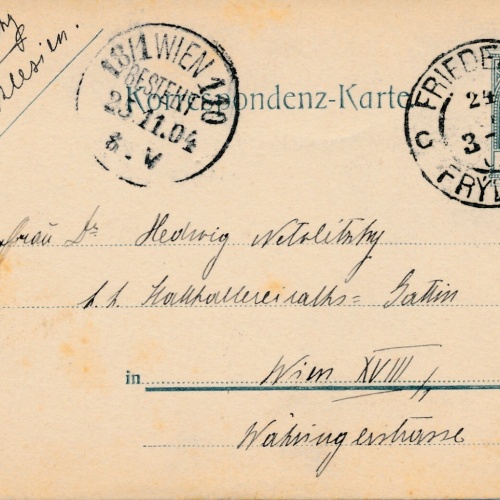 Schlesien.
18/1 WIEN 110
BESTELLT
25.11.04
8. V
Korrespondenz-Karte
FRIEDE
C
3
FRÝD
Frau Dr Hedwig Netolitzky
k. k. Statthaltereiraths= Gattin
in Wien XVIII/1
Währingerstrasse